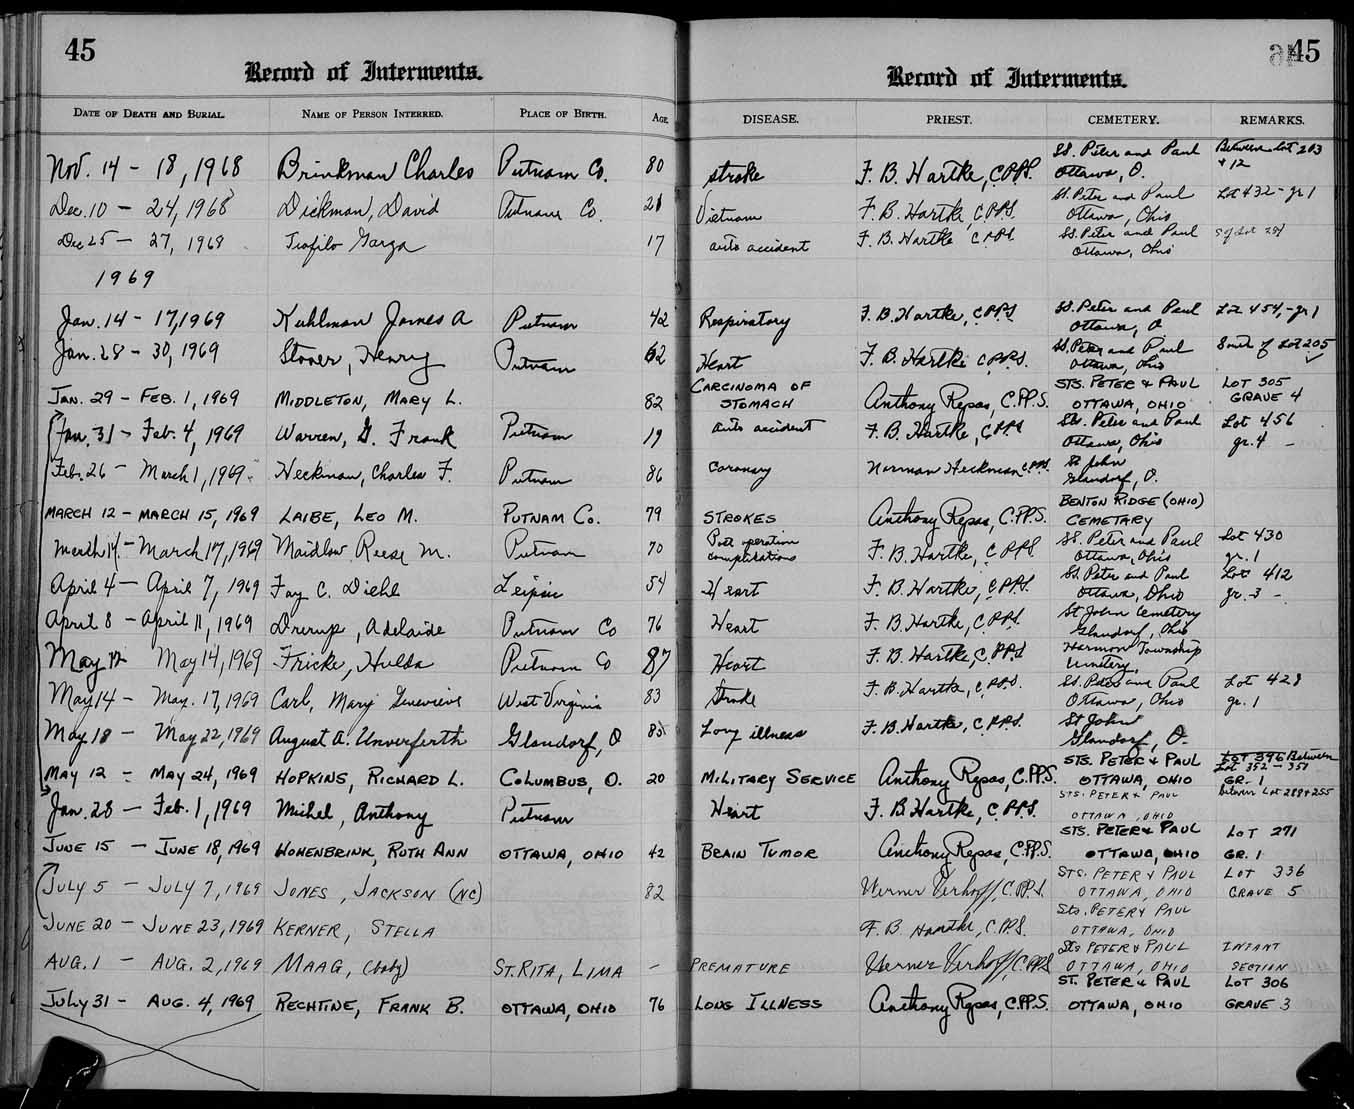 45
Record of Interments.
DATE OF DEATH AND BURIAL. NAME OF PERSON INTERRED. PLACE OF BIRTH. AGE
Nov. 14 - 18, 1968 Brinkman Charles Putnam Co. 80
Dec. 10 - 24, 1968 Dickman, David Putnam Co. 21
Dec 25 - 27, 1968 Teofilo Garza 17
1969
Jan. 14 - 17, 1969 Kuhlman James A Putnam 42
Jan. 28 - 30, 1969 Stover, Henry Putnam 62
JAN. 29 - FEB. 1, 1969 MIDDLETON, MARY L. 82
Jan. 31 - Feb. 4, 1969 Warren, G. Frank Putnam 19
Feb. 26 - March 1, 1969 Heckman, Charles F. Putnam 86
MARCH 12 - MARCH 15, 1969 LAIBE, LEO M. PUTNAM CO. 79
March 14 - March 17, 1969 Maidlow Reese M. Putnam 70
April 4 - April 7, 1969 Fay C. Diehl Leipsic 54
April 8 - April 11, 1969 Drerup, Adelaide Putnam Co 76
May 12 May 14, 1969 Fricke, Hulda Putnam Co 87
May 14 - May. 17, 1969 Carl, Mary Genevieve West Virginia 83
May 18 - May 22, 1969 August A. Unverferth Glandorf, O 85
MAY 12 - MAY 24, 1969 HOPKINS, RICHARD L. COLUMBUS, O. 20
Jan. 28 - Feb. 1, 1969 Michel, Anthony Putnam
JUNE 15 - JUNE 18, 1969 HOHENBRINK, RUTH ANN OTTAWA, OHIO 42
JULY 5 - JULY 7, 1969 JONES, JACKSON (NC) 82
JUNE 20 - JUNE 23, 1969 KERNER, STELLA
AUG. 1 - AUG. 2, 1969 MAAG, (baby) ST. RITA, LIMA -
JULY 31 - AUG. 4, 1969 RECHTINE, FRANK B. OTTAWA, OHIO 76
46 45
Record of Interments.
DISEASE. PRIEST. CEMETERY. REMARKS.
stroke F. B. Hartke, C.PP.S. SS. Peter and Paul Ottawa, O. Between Lot 203 + 12
Vietnam F. B. Hartke, C.PP.S. SS. Peter and Paul Ottawa, Ohio Lot 432 - gr 1
auto accident F. B. Hartke C.PP.S. SS. Peter and Paul Ottawa, Ohio
Respiratory F. B. Hartke, C.PP.S. SS. Peter and Paul Ottawa, O Lot 454, - gr 1
Heart F. B. Hartke C.PP.S. SS. Peter and Paul Ottawa, Ohio South of Lot 205 ✓
CARCINOMA OF STOMACH Anthony Repas, C.PP.S. STS. PETER & PAUL OTTAWA, OHIO LOT 305 GRAVE 4
auto accident F. B. Hartke, C.PP.S. Sts. Peter and Paul Ottawa, Ohio Lot 456 gr. 4 -
Coronary Norman Heckman C.PP.S. St John Glandorf, O.
STROKES Anthony Repas, C.PP.S. BENTON RIDGE (OHIO) CEMETARY
Post operation complications F. B. Hartke, C.PP.S. SS. Peter and Paul Ottawa, Ohio Lot 430 gr. 1
Heart F. B. Hartke, C.PP.S. SS. Peter and Paul Ottawa, Ohio Lot 412 gr. 3 -
Heart F. B. Hartke, C.PP.S. St John Cemetery Glandorf, Ohio
Heart F. B. Hartke, C.PP.S Harmon Township Cemetery
Stroke F. B. Hartke, C.PP.S. SS. Peter and Paul Ottawa, Ohio Lot 428 gr. 1
Long illness F. B. Hartke, C.PP.S. St John Glandorf, O.
MILITARY SERVICE Anthony Repas, C.PP.S. STS. PETER & PAUL OTTAWA, OHIO LOT 396 Between Lot 352 - 351 GR. 1
Heart F. B. Hartke, C.PP.S. STS. PETER & PAUL OTTAWA, OHIO Between Lot 288 + 255
BRAIN TUMOR Anthony Repas, C.PP.S. STS. PETER & PAUL OTTAWA, OHIO LOT 271 GR. 1
Werner Verhoff, C.PP.S. STS. PETER & PAUL OTTAWA, OHIO LOT 336 GRAVE 5
F. B. Hartke, C.PP.S. STS. PETER & PAUL OTTAWA, OHIO
PREMATURE Werner Verhoff, C.PP.S STS PETER & PAUL OTTAWA, OHIO INFANT SECTION
LONG ILLNESS Anthony Repas, C.PP.S. ST. PETER & PAUL OTTAWA, OHIO LOT 306 GRAVE 3